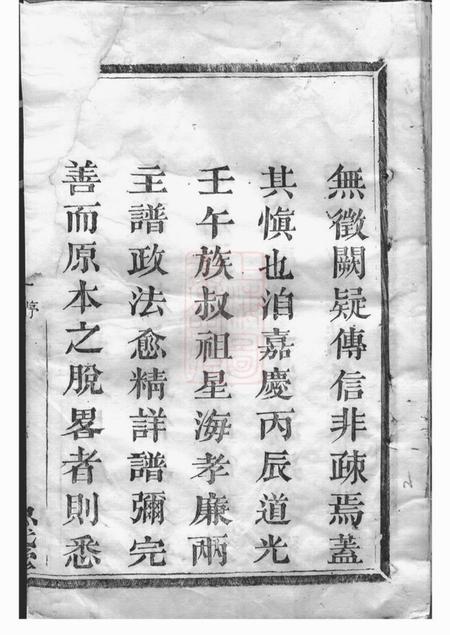 無徵闕疑傳信非疎焉蓋
其慎也洎嘉慶丙辰道光
壬午族叔祖星海孝廉兩
主譜政法愈精詳譜彌完
善而原本之脫畧者則悉
序